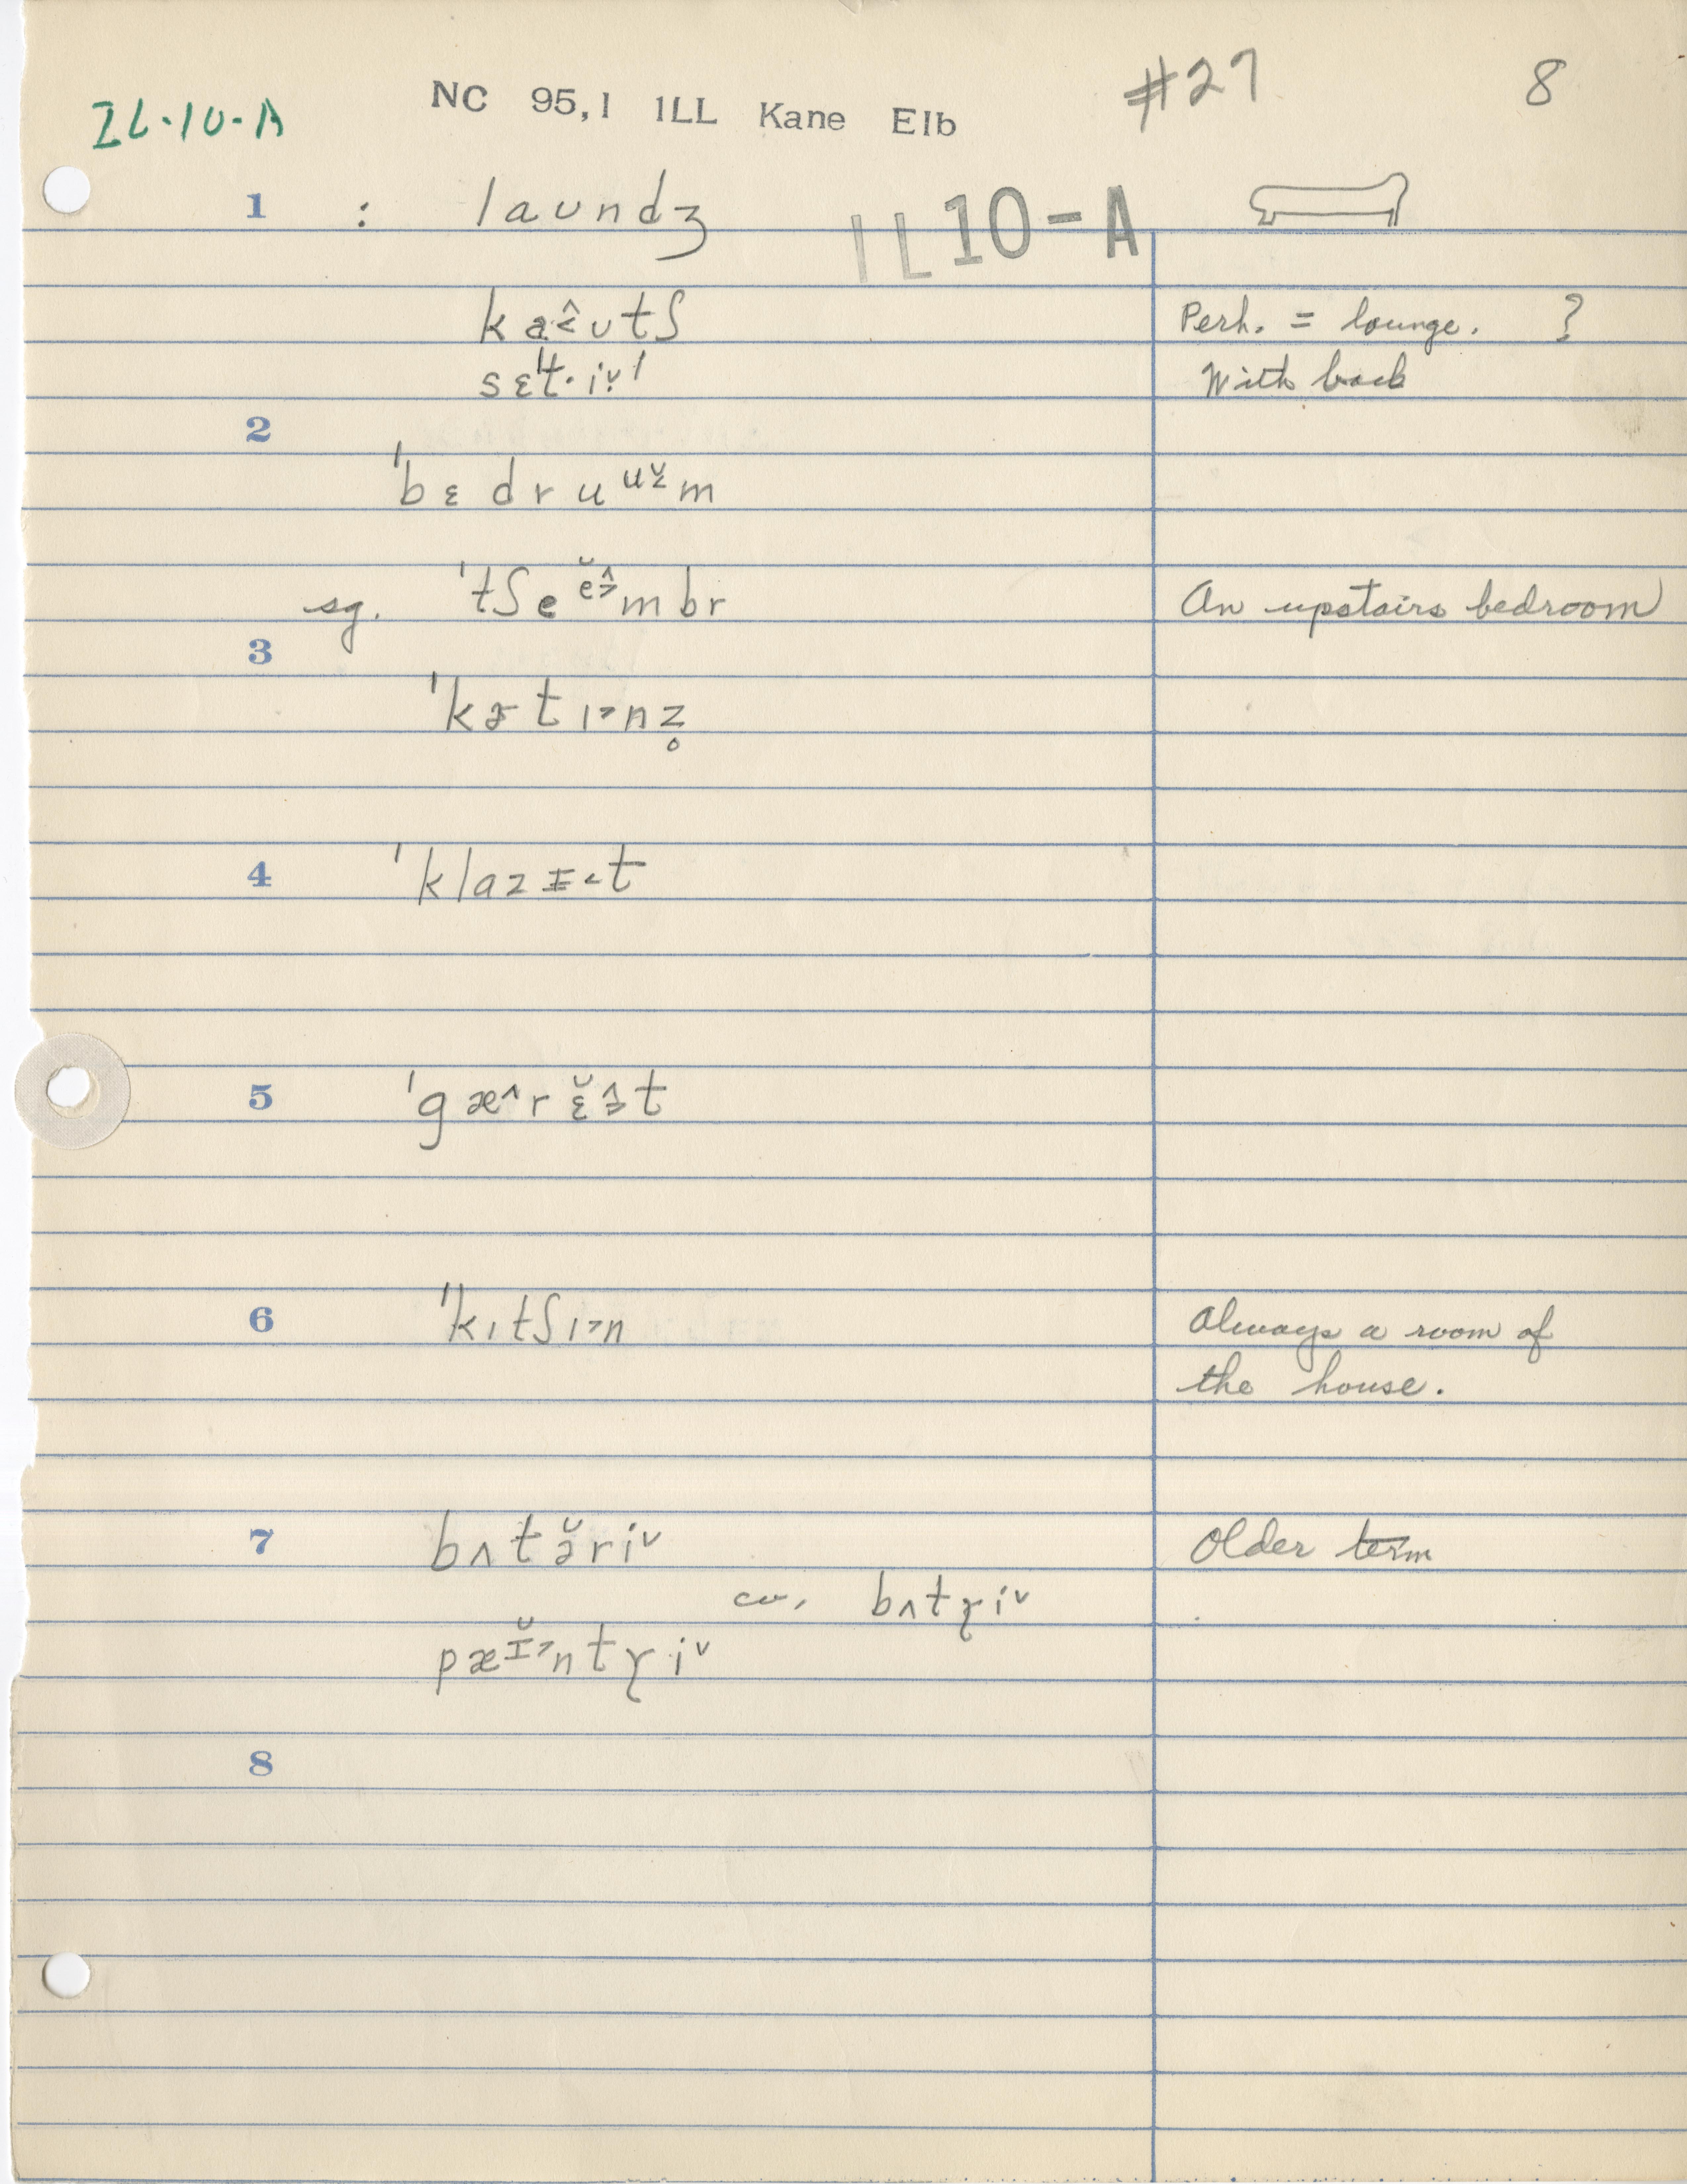 IL-10-A NC 95,1 ILL Kane Elb #27 8
1 : laundʒ IL10-A
kaˆ˂ʊtʃ Perh. = lounge. ?
sɛˈt·iˇˈ With back
2
ˈbɛdruᵘˇm
sg. ˈtʃeᵉ̆ˆ˃mbr An upstairs bedroom
3
ˈkɚtɪ˃nz̥
4 ˈklazɪ˂t
5 ˈgæˆrɛ̆ˆ˃t
6 ˈkɪtʃɪ˃n Always a room of
the house.
7 bʌtə̆riˇ Older term
cv, bʌtɹ̩iˇ
pæɪ̆˃ntɹ̩iˇ
8